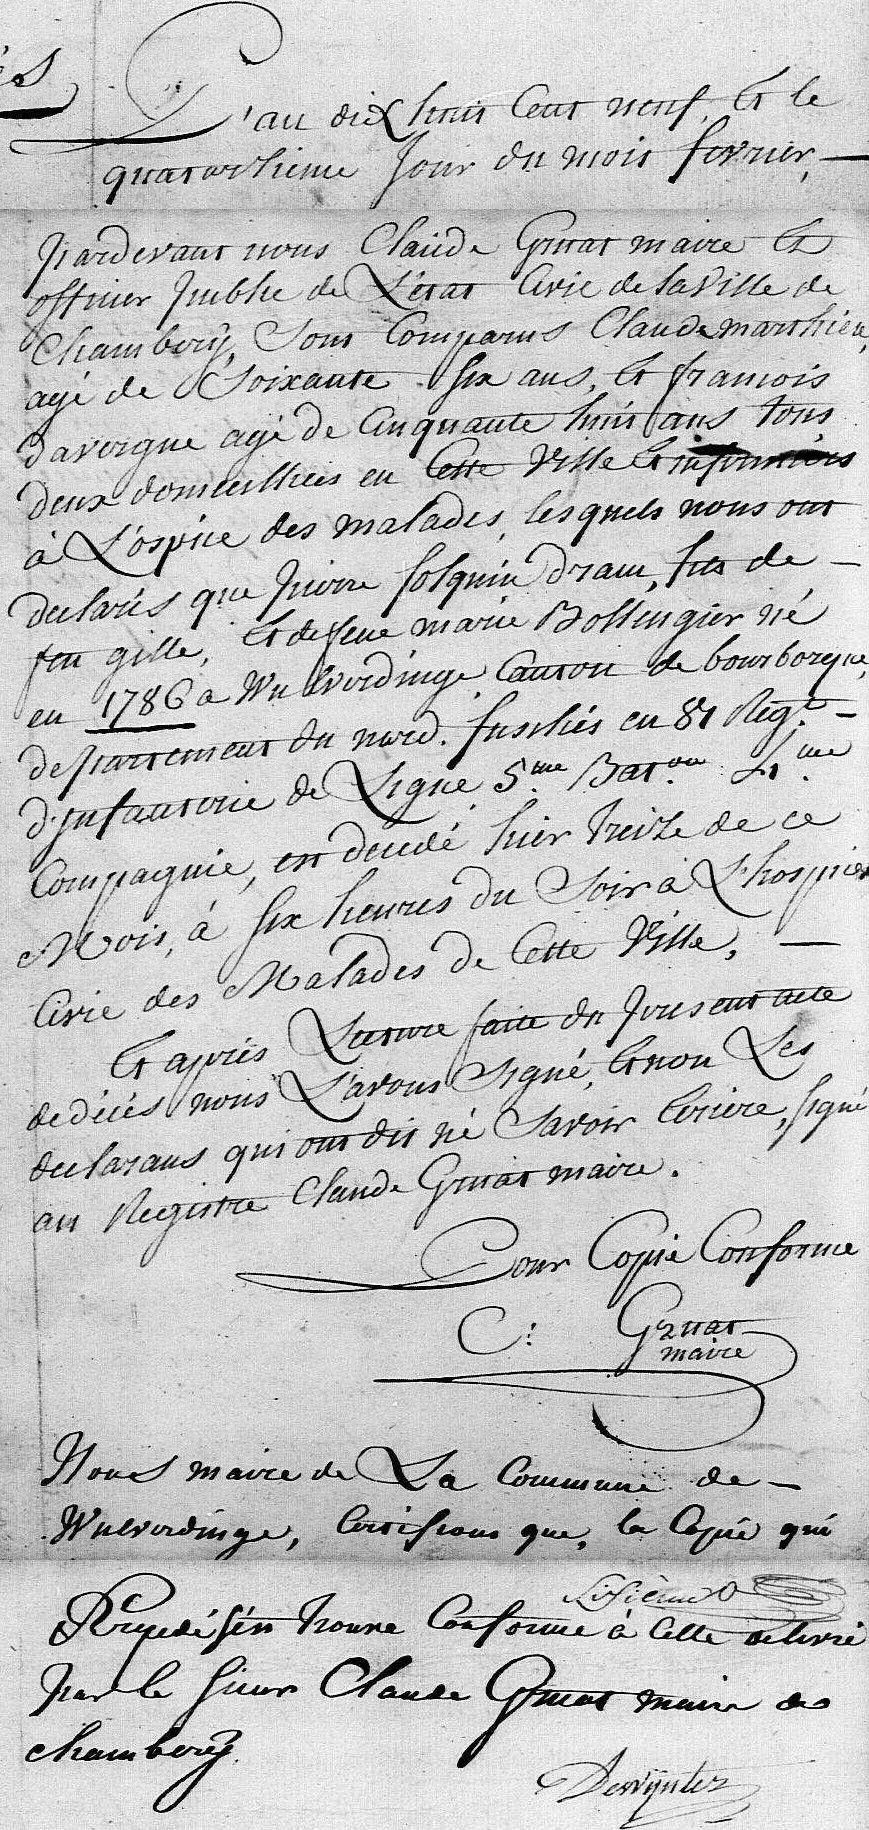 L'an dix huit Cent neuf, Et le
quatorzieme Jour du mois fevrier, —
pardevant nous Claude Gruat maire Et
officier public de L'état Civie de la Ville de
Chambery, Sont Comparus Claude marthieu,
agé de Soixante Six ans, Et francois
davergne agé de Cinquante huit ans tous
deux domeciliés en Cette Ville Et infirmiers
à L'ospice des malades, lesquels nous ont
declarés que pierre folquin dram, fils de —
feu gille, Et de feue marie Bollengier né
en 1786 a Wulverdinge, Canton de bourborque,
departement du nord. fusiliés en 81 Regt. —
d'infanterie de Ligne 5.me Baton. 4.me
Compagnie, est décedé hier treize de ce
Mois, à Six heures du Soir à L'hospice
Civie des Malades de Cette Ville, —
Et après Lecture faite du present acte
de décés nous L'avons Signé, Et non Les
declarans qui ont dit né Savoir Ecrire, Signé
au Registre Claude Gruat maire.
Pour Copie Conforme
C: Gruat
maire
Nous maire de La Commune de —
Wulverdinge, Certifions que, la Copie qui
précédé s'en trouve Conforme à Celle delivré
par le Sieur Claude Gruat maire de
chambery.
Dewynter